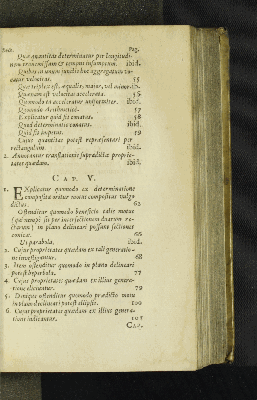 Sect. Pag.
Quæ quantitas determinatur per longitudi-
nem eamdem & tempus insumptum. ibid.
Quibus in unum junctis hoc aggregatum vo-
catur velocitas. 55
Quæ triplex est, æqualis, major, vel minor. ib.
Quænam est velocitas accelerata. 56
Quomodo ea acceleratur uniformiter. ibid.
Quomodo Arithmetice. 57
Explicatur quid sit conatus. 58
Quid determinatio conatus. ibid.
Quid sit impetus. 59
Cujus quantitas potest repræsentari per
rectangulum. ibid.
2. Annotantur translationis supradictæ proprie-
tates quædam. ibid.
CAP. V.
1. Explicatur quomodo ex determinatione
composita oritur motus compositus vulgo
dictus. 62
Ostenditur quomodo beneficio talis motus
(qui nempe fit per intersectionem duarum re-
ctarum) in plano delineari possunt sectiones
conicæ. 65
Ut parabola. ibid.
2. Cujus proprietates quædam ex tali generatio-
ne investigantur. 68
3. Item ostenditur quomodo in plano delineari
potest hyperbola. 77
4. Cujus proprietates quædam ex illius genera-
tione eliciuntur. 79
5. Denique ostenditur quomodo prædicto motu
in plano delineari potest ellipsis. 100
6. Cujus proprietates quædam ex illius genera-
tione indicantur. 105
CAP.